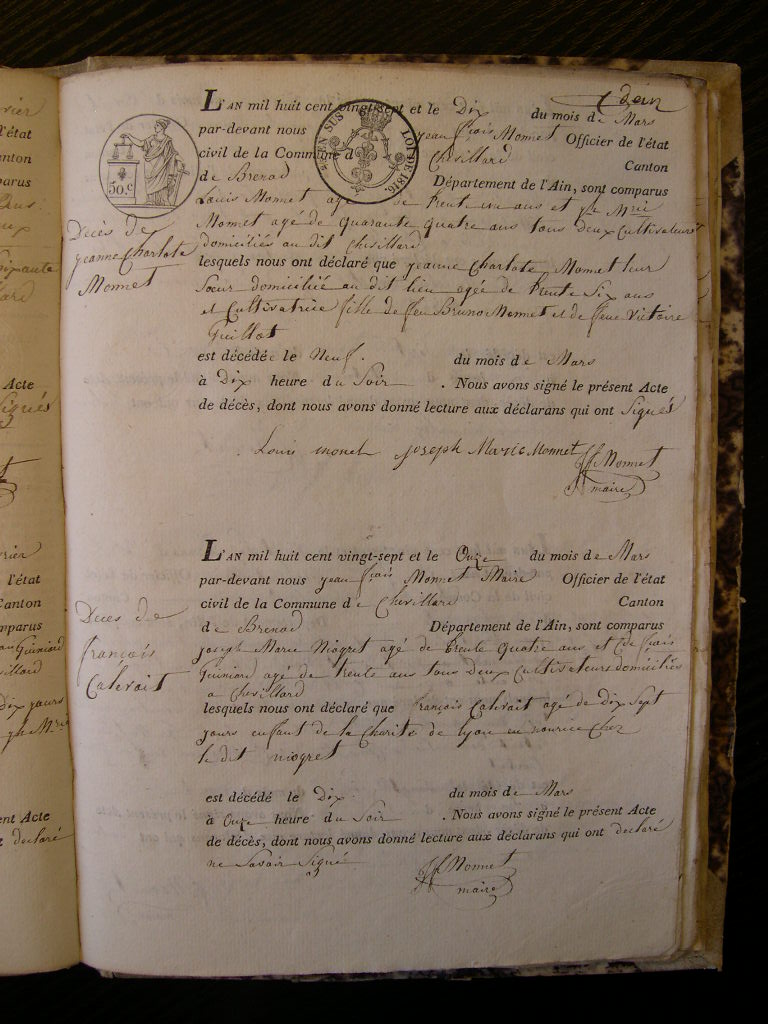 L'AN mil huit cent vingt-sept et le Dix du mois de Mars
par-devant nous jean frçois Monnet Officier de l'état
civil de la Commune de Chevillard Canton
de Brenod Département de l'Ain, sont comparus
Louis Monnet agé de trente un ans et jh Mrie
Monnet agé de quarante quatre ans tous deux cultivateurs
domiciliés au dit Chevillard
lesquels nous ont déclaré que jeanne Charlote Monnet leur
Sœur domiciliée au dit lieu agée de trente Six ans
et Cultivatrice fille de feu Bruno Monnet et de feue Victoire
Guillot
est décédée le Neuf du mois de Mars
à Dix heure du Soir . Nous avons signé le présent Acte
de décès, dont nous avons donné lecture aux déclarans qui ont Signés
Louis monet joseph Marie Monnet Jf Monnet
maire
Décès de
jeanne Charlote
Monnet
50 c
EN SUS LOI DE 1816
L'AN mil huit cent vingt-sept et le Onze du mois de Mars
par-devant nous jean frçois Monnet Maire Officier de l'état
civil de la Commune de Chevillard Canton
de Brenod Département de l'Ain, sont comparus
joseph Marie Niogret agé de trente quatre ans et frçois
Guiniard agé de trente ans tous deux cultivateurs domiciliés
a Chevillard
lesquels nous ont déclaré que françois Calvrait agé de Dix Sept
jours enfant de la Charité de lyon en nourrice chez
le dit niogret
est décédé le Dix du mois de Mars
à Onze heure du Soir . Nous avons signé le présent Acte
de décès, dont nous avons donné lecture aux déclarans qui ont déclaré
ne Savoir Signé
Jf Monnet
maire
Décès de
françois
Calvrait
l'état
Canton
mparus
Acte
l'état
Canton
mparus
ent Acte
déclaré